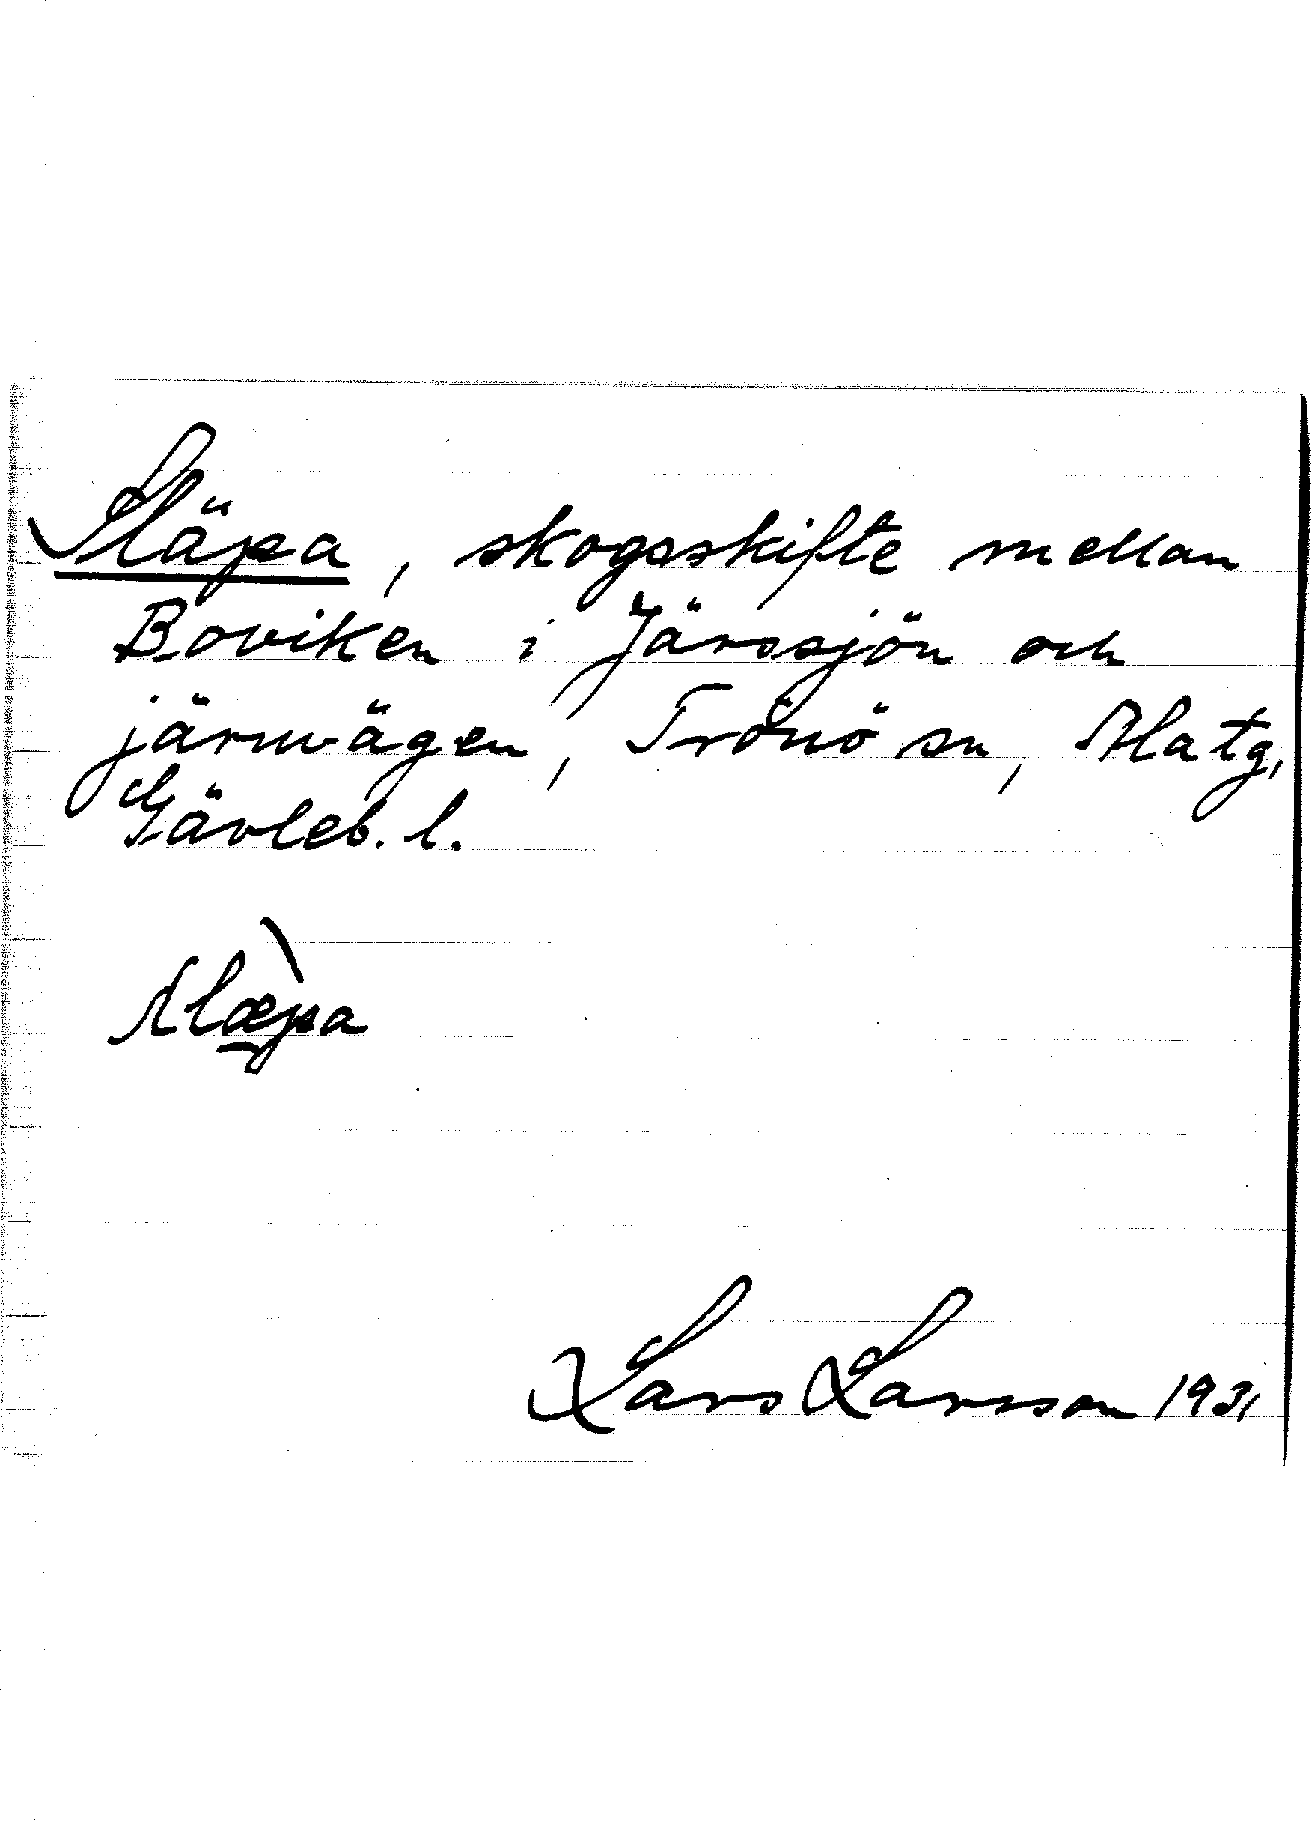 Släpa, skogsskifte mellan
Boviken i Järvsjön och
järnvägen, Trönö sn, Ala tg,
Gävleb. l.
slæpa
Lars Larsson 1931